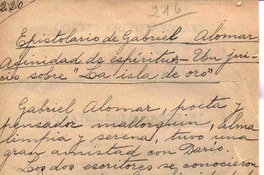 220
216
Epistolario de Gabriel Alomar
Afinidad de espíritus - Un jui-
cio sobre "La isla de oro"
Gabriel Alomar, poeta y
pensador mallorquin, alma
limpia y serena, tuvo una
gran amistad con Darío.
Los dos escritores se conocieron